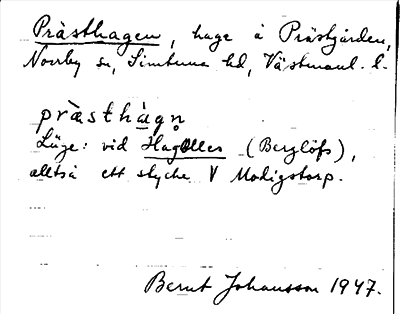 Prästhagen, hage å Prästgården,
Norrby sn, Simtuna hd, Västmanl. l.
prästhagn
Läge: vid Hagalles (Berglöfs),
alltså ett stycke V Modigstorp.
Bernt Johansson 1947.